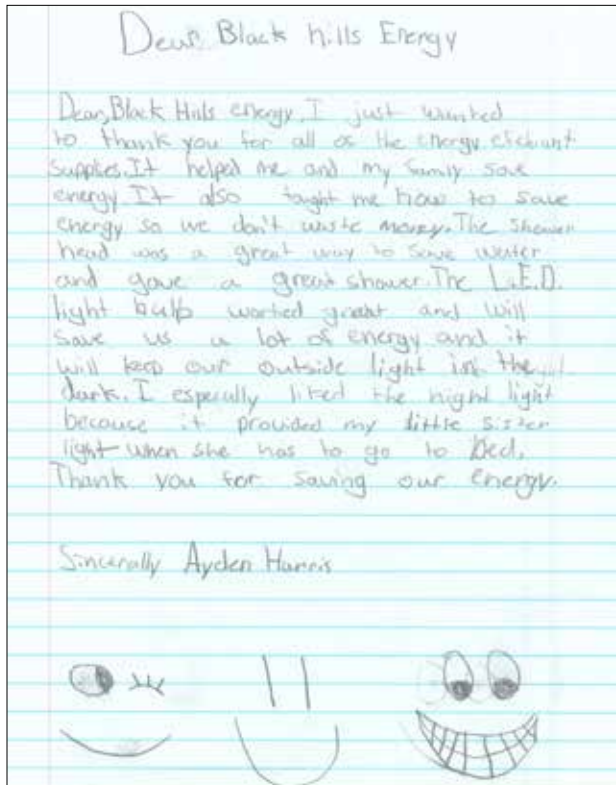 Dear Black hills Energy
Dear, Black Hills energy, I just wanted
to thank you for all os the energy efichant
supplies. It helped me and my family save
energy. It also taght me how to save
energy so we don't waste money. The shower
head was a great way to save water
and gave a great shower. The L.E.D.
light bulb worked great and will
save us a lot of energy and it
will keep our outside light in the
dark. I especially liked the night light
because it provided my little sister
light when she has to go to bed.
Thank you for saving our energy.
Sincerally Ayden Harris